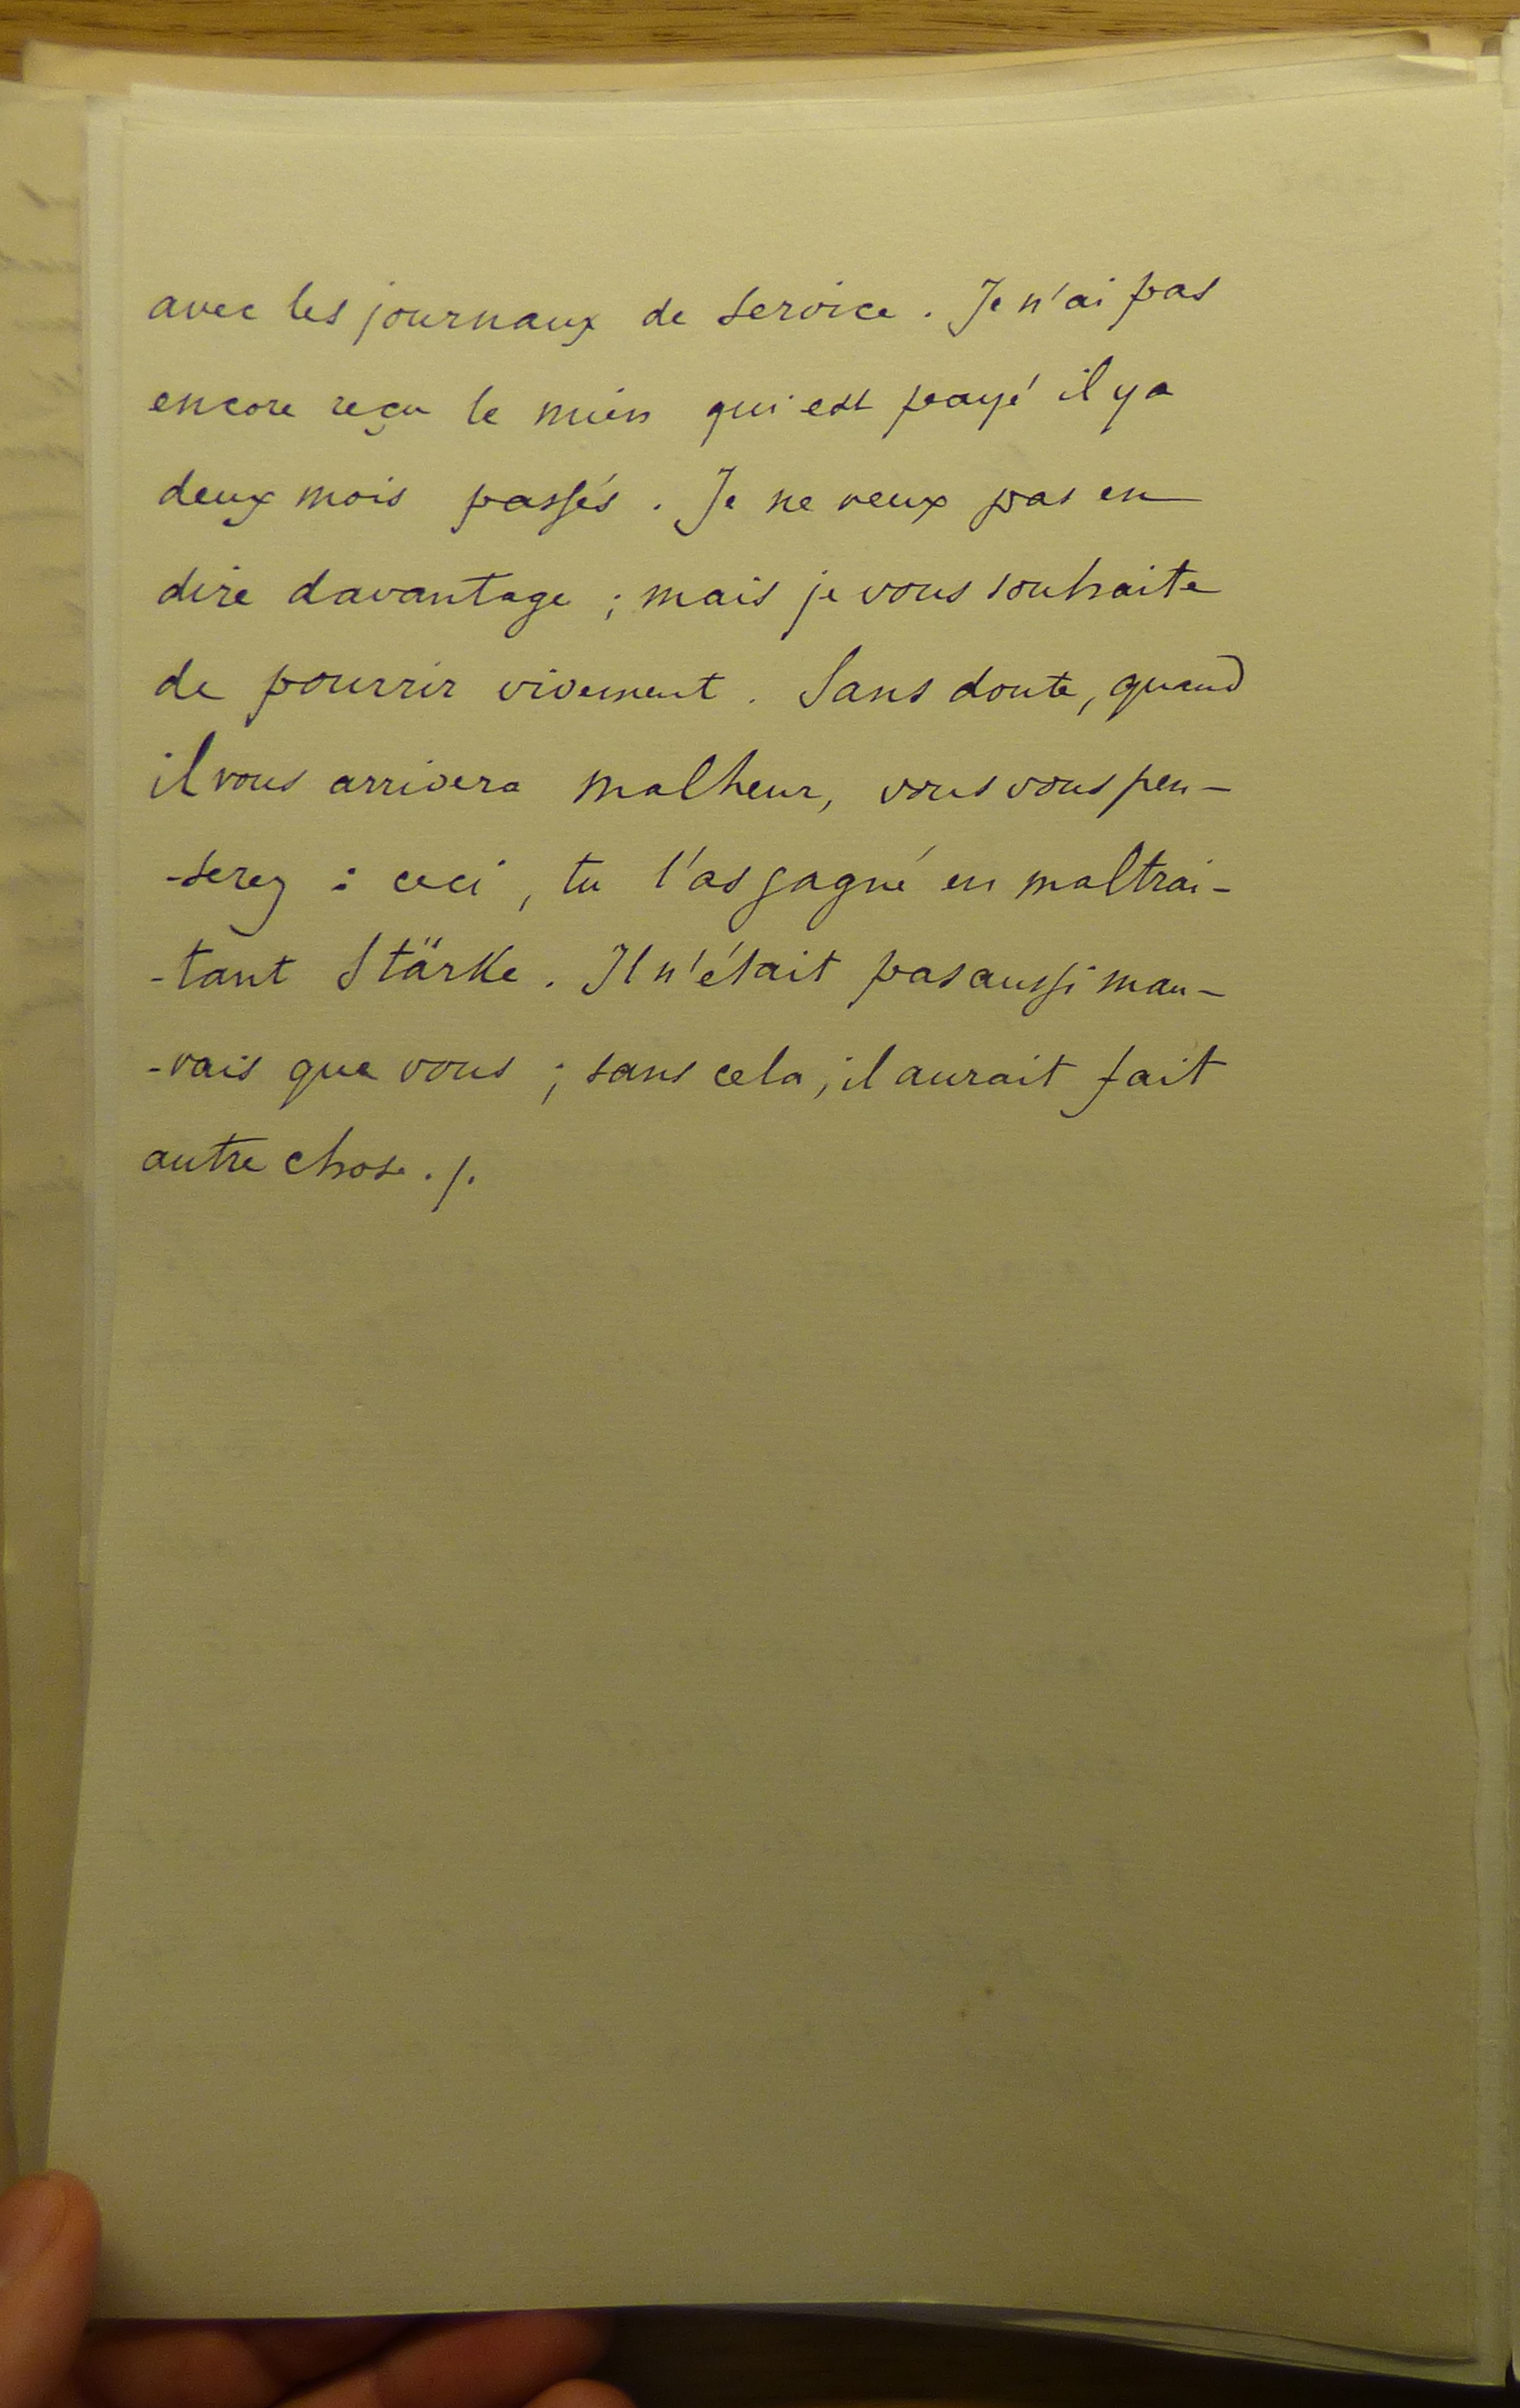 avec les journaux de service. Je n'ai pas
encore reçu le mien qui est payé il y a
deux mois passés. Je ne veux pas en
dire davantage ; mais je vous souhaite
de pourrir vivement. Sans doute, quand
il vous arrivera malheur, vous vous pen-
-serez : ceci, tu l'as gagné en maltrai-
-tant Stärke. Il n'était pas aussi mau-
-vais que vous ; sans cela, il aurait fait
autre chose ./.